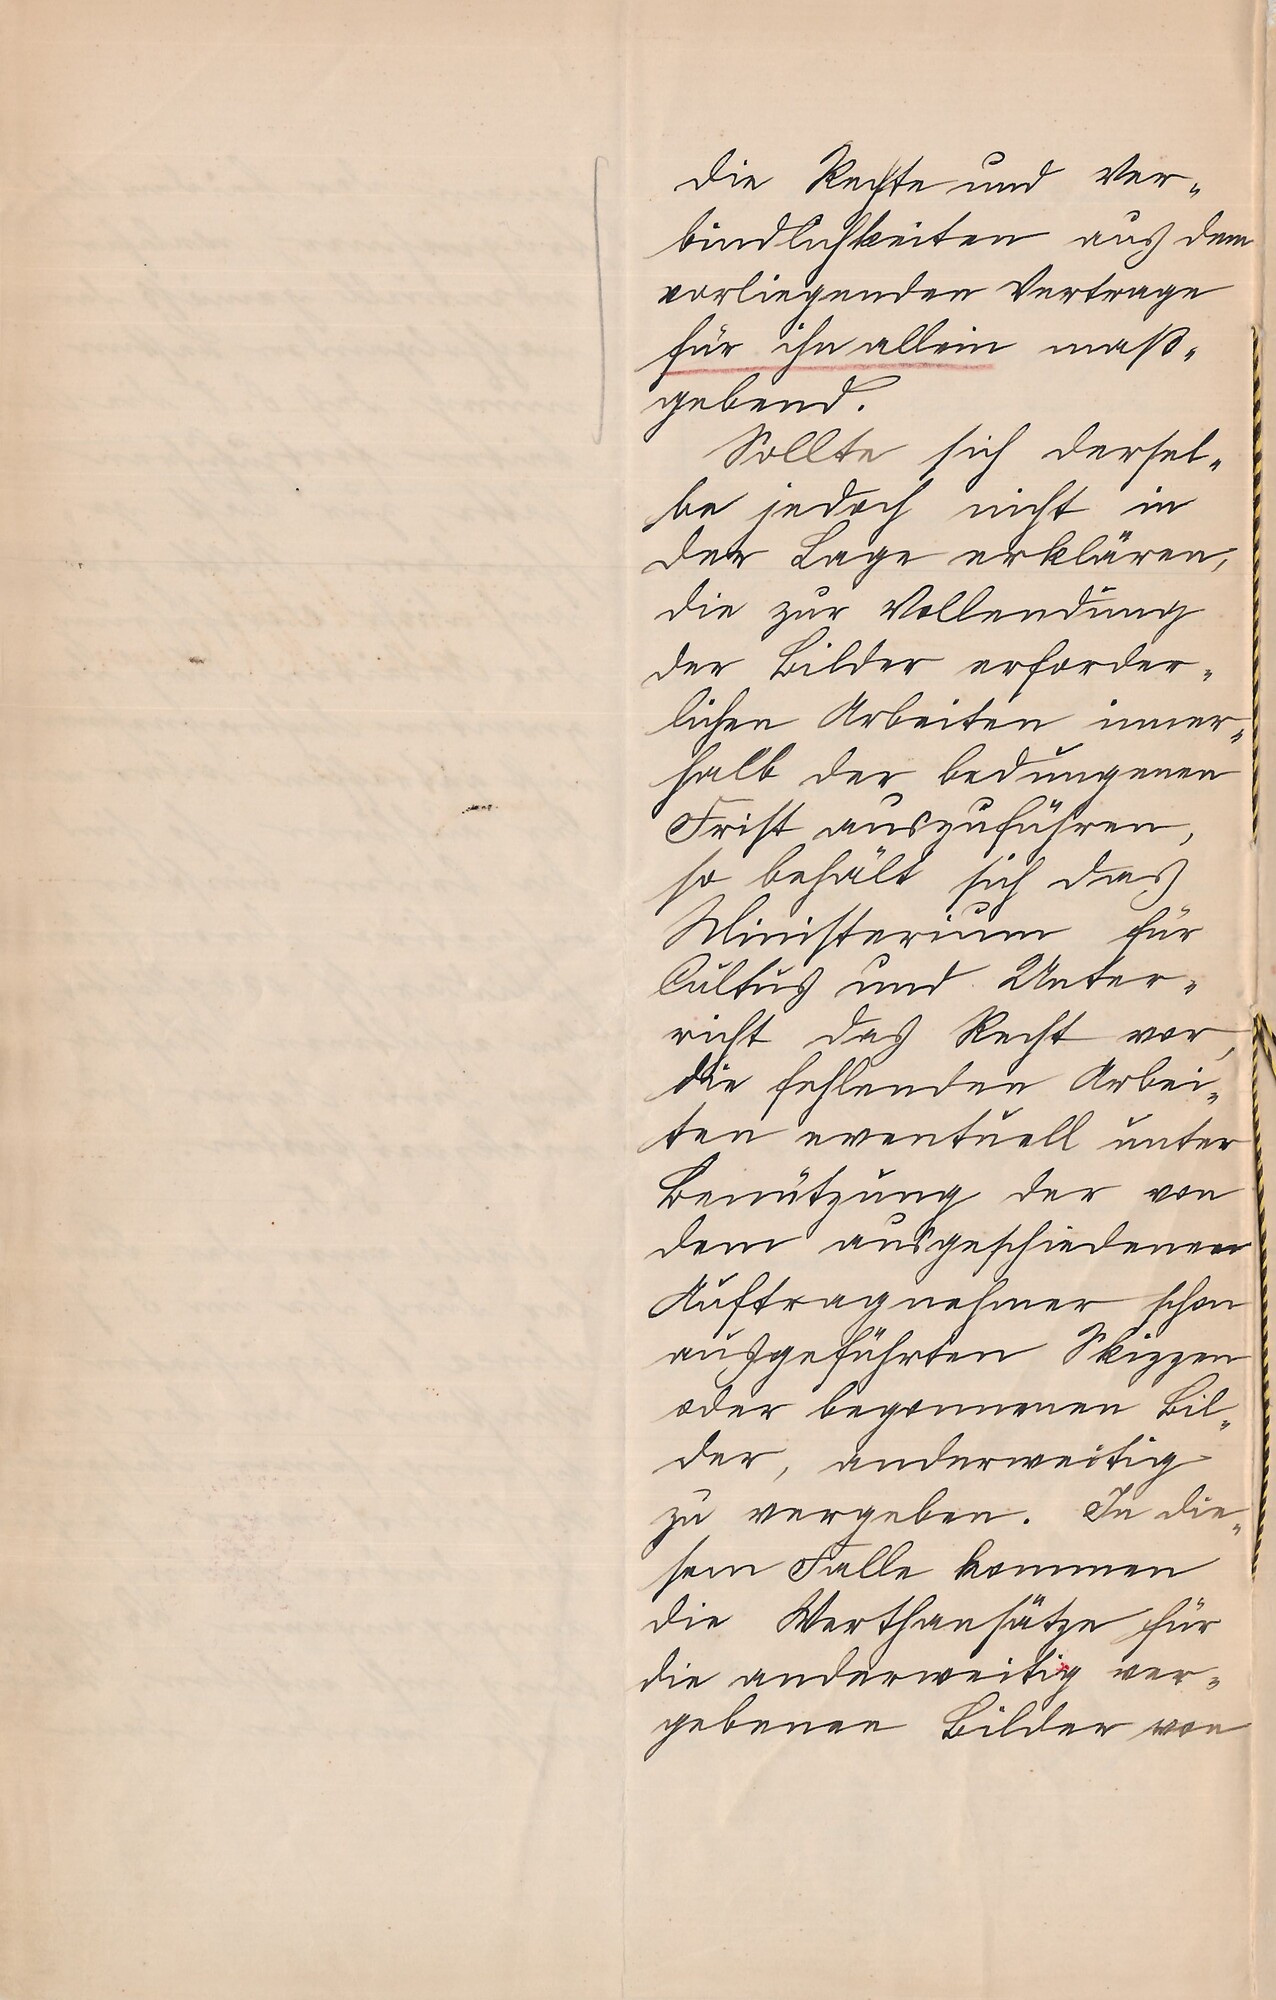 die Rechte und Ver-
bindlichkeiten aus dem
vorliegenden Vertrage
für ihn allein maß-
gebend.
Sollte sich dersel-
be jedoch nicht in
der Lage erklären,
die zur Vollendung
der Bilder erforder-
lichen Arbeiten inner-
halb der bedungenen
Frist auszuführen,
so behält sich das
Ministerium für
Cultus und Unter-
richt das Recht vor,
die fehlenden Arbei-
ten eventuell unter
Benützung der von
dem ausgeschiedenen
Auftragnehmer schon
ausgeführten Skizzen
oder begonnenen Bil-
der, anderweitig
zu vergeben. In die-
sem Falle kommen
die Werthansätze für
die anderweitig ver-
gebenen Bilder von